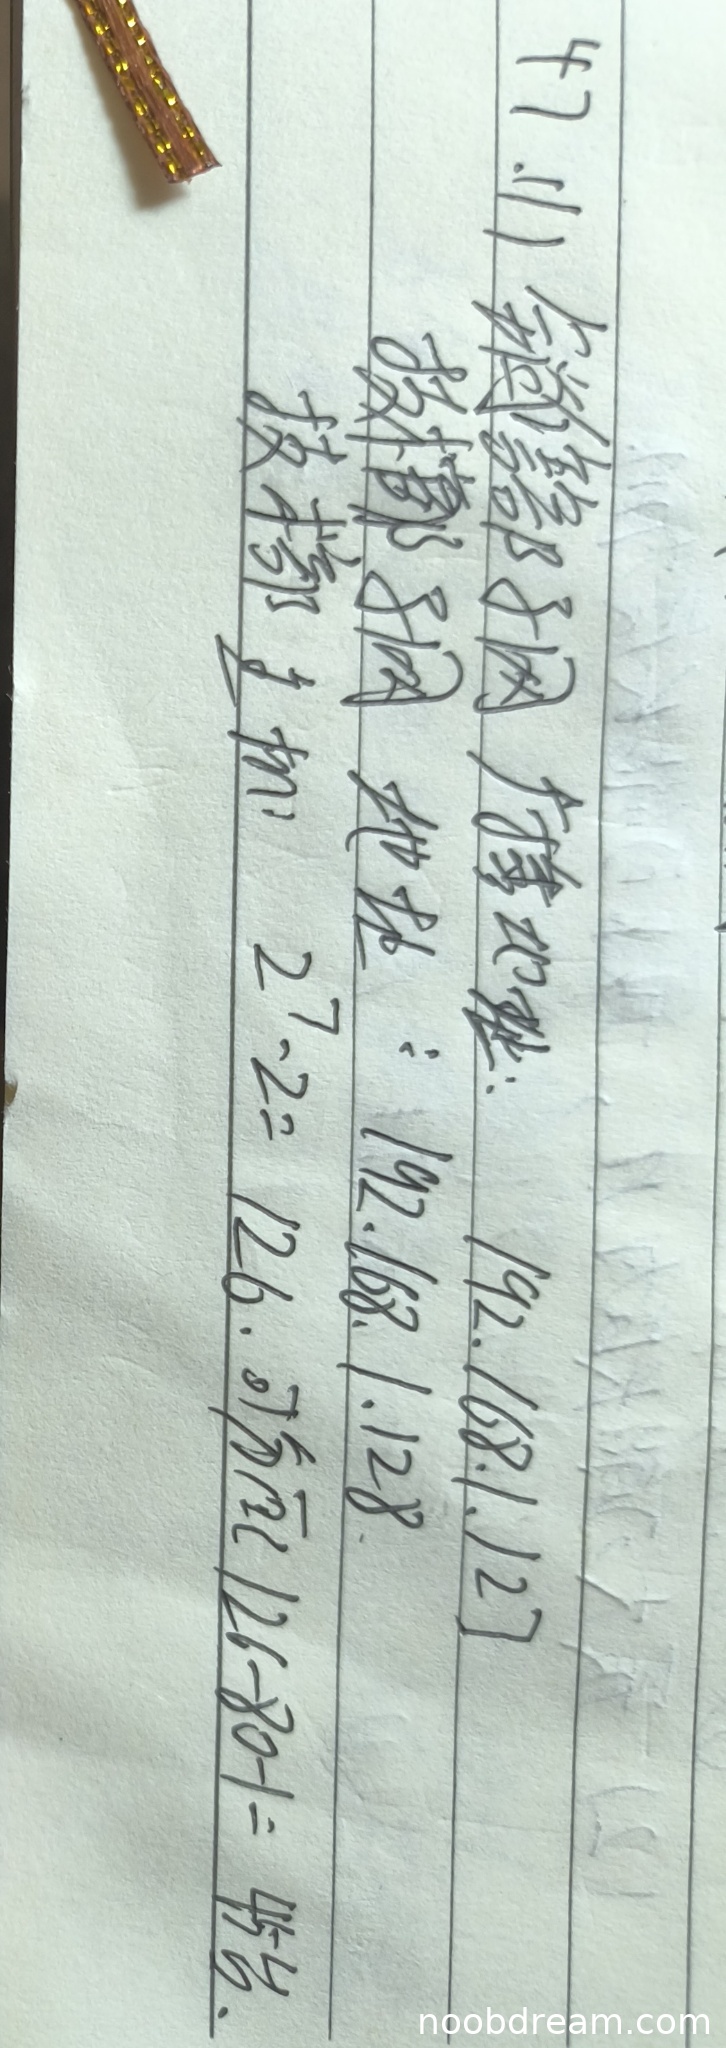 47.(1) 销售部子网 广播地址: 192.168.1.127
技术部子网 地址: 192.168.1.128.
技术部主机: 2⁷-2= 126. 可分配 126-80-1= 45台.
noobdream.com